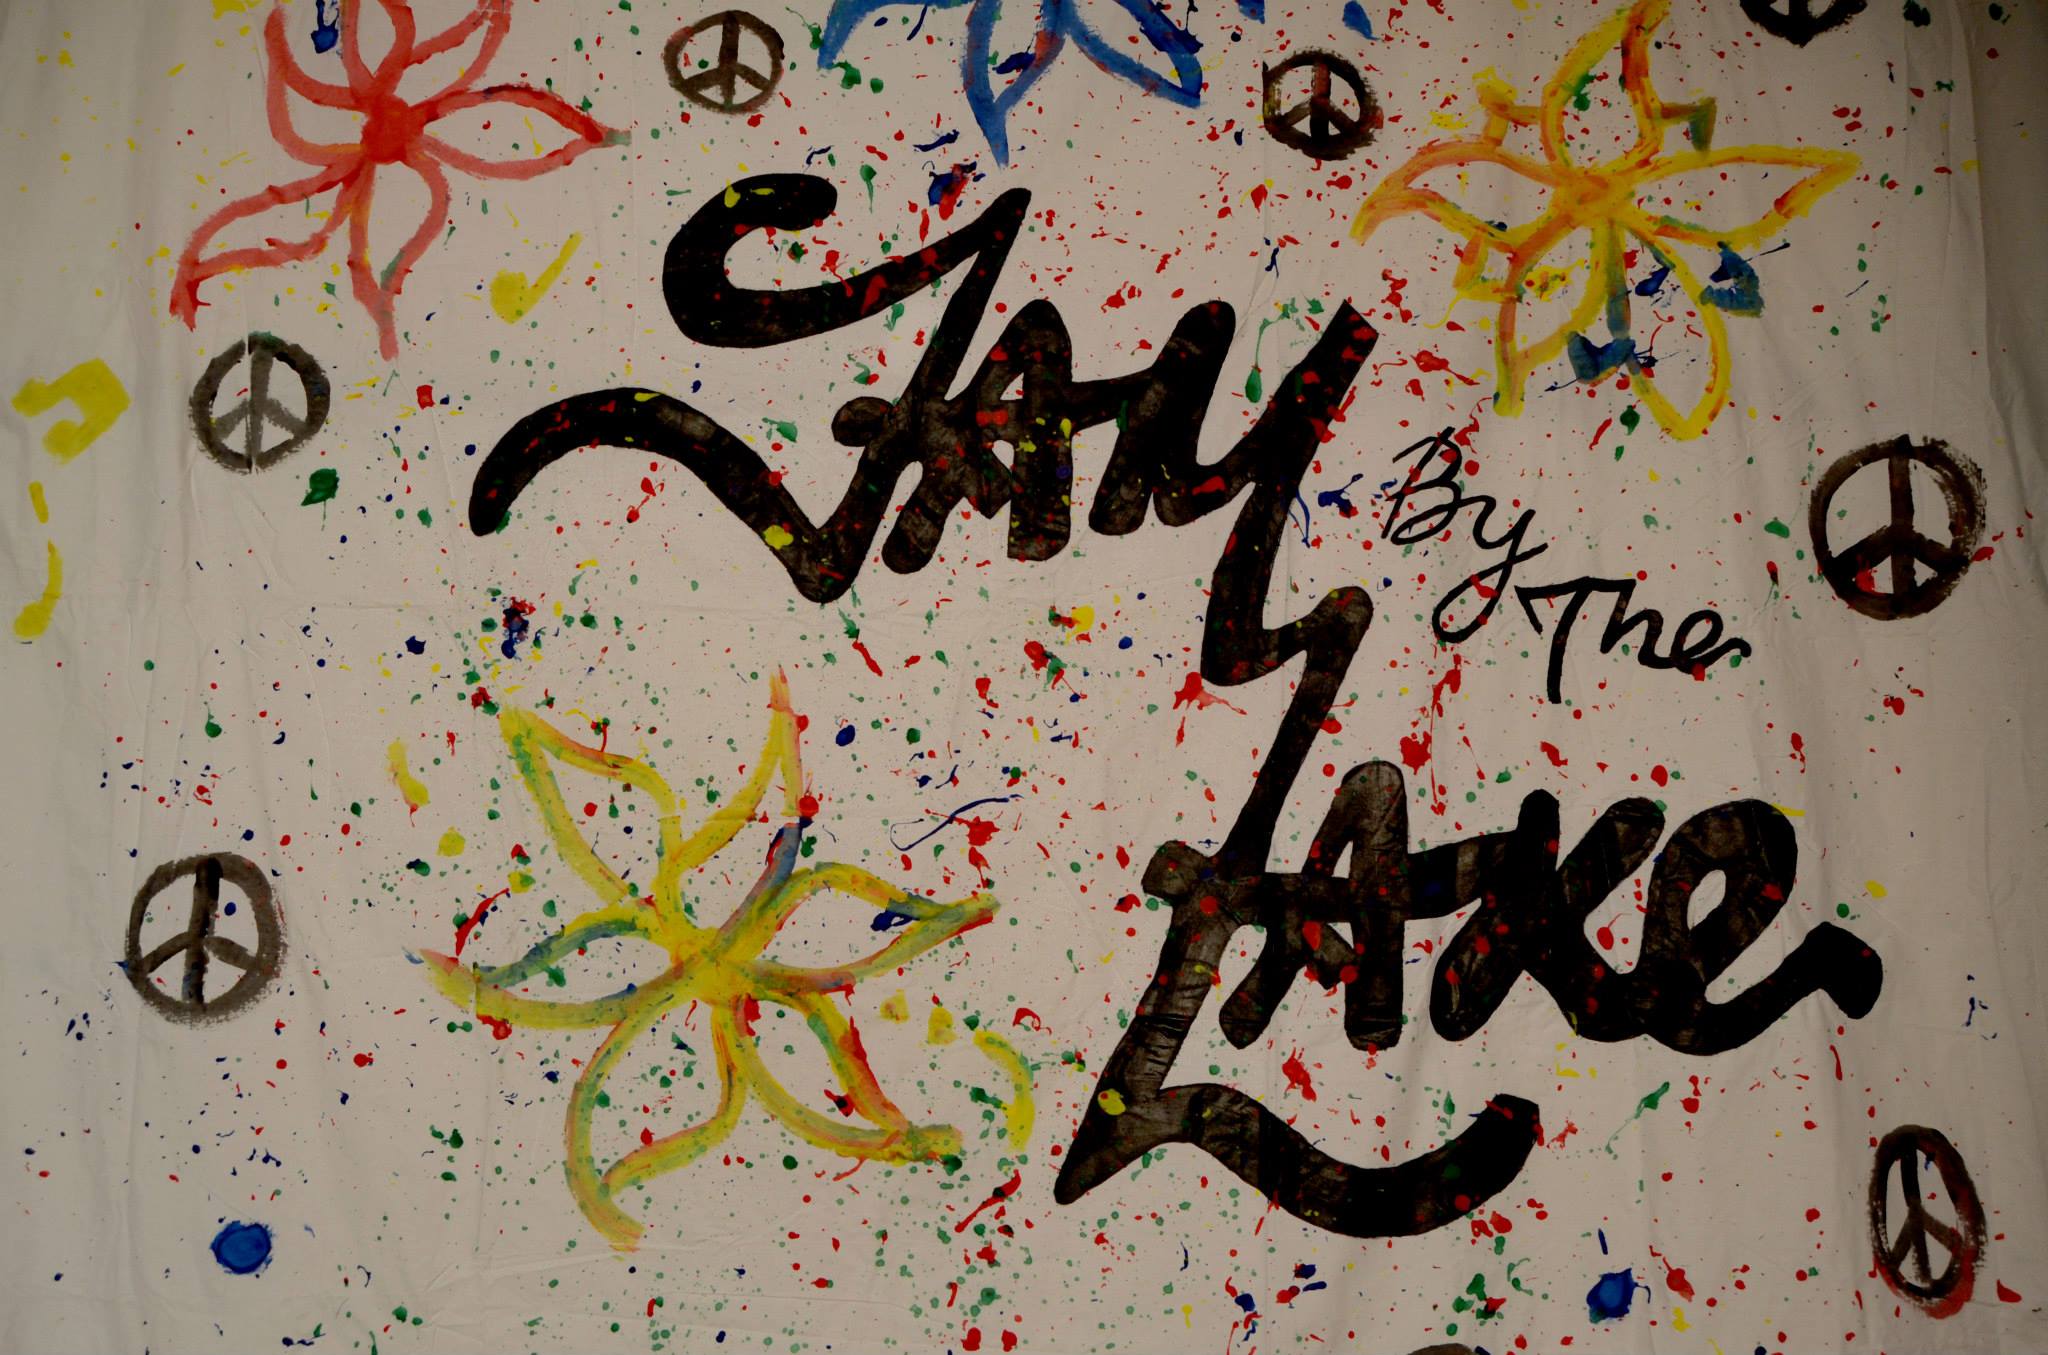 JAM
By The
LAKe